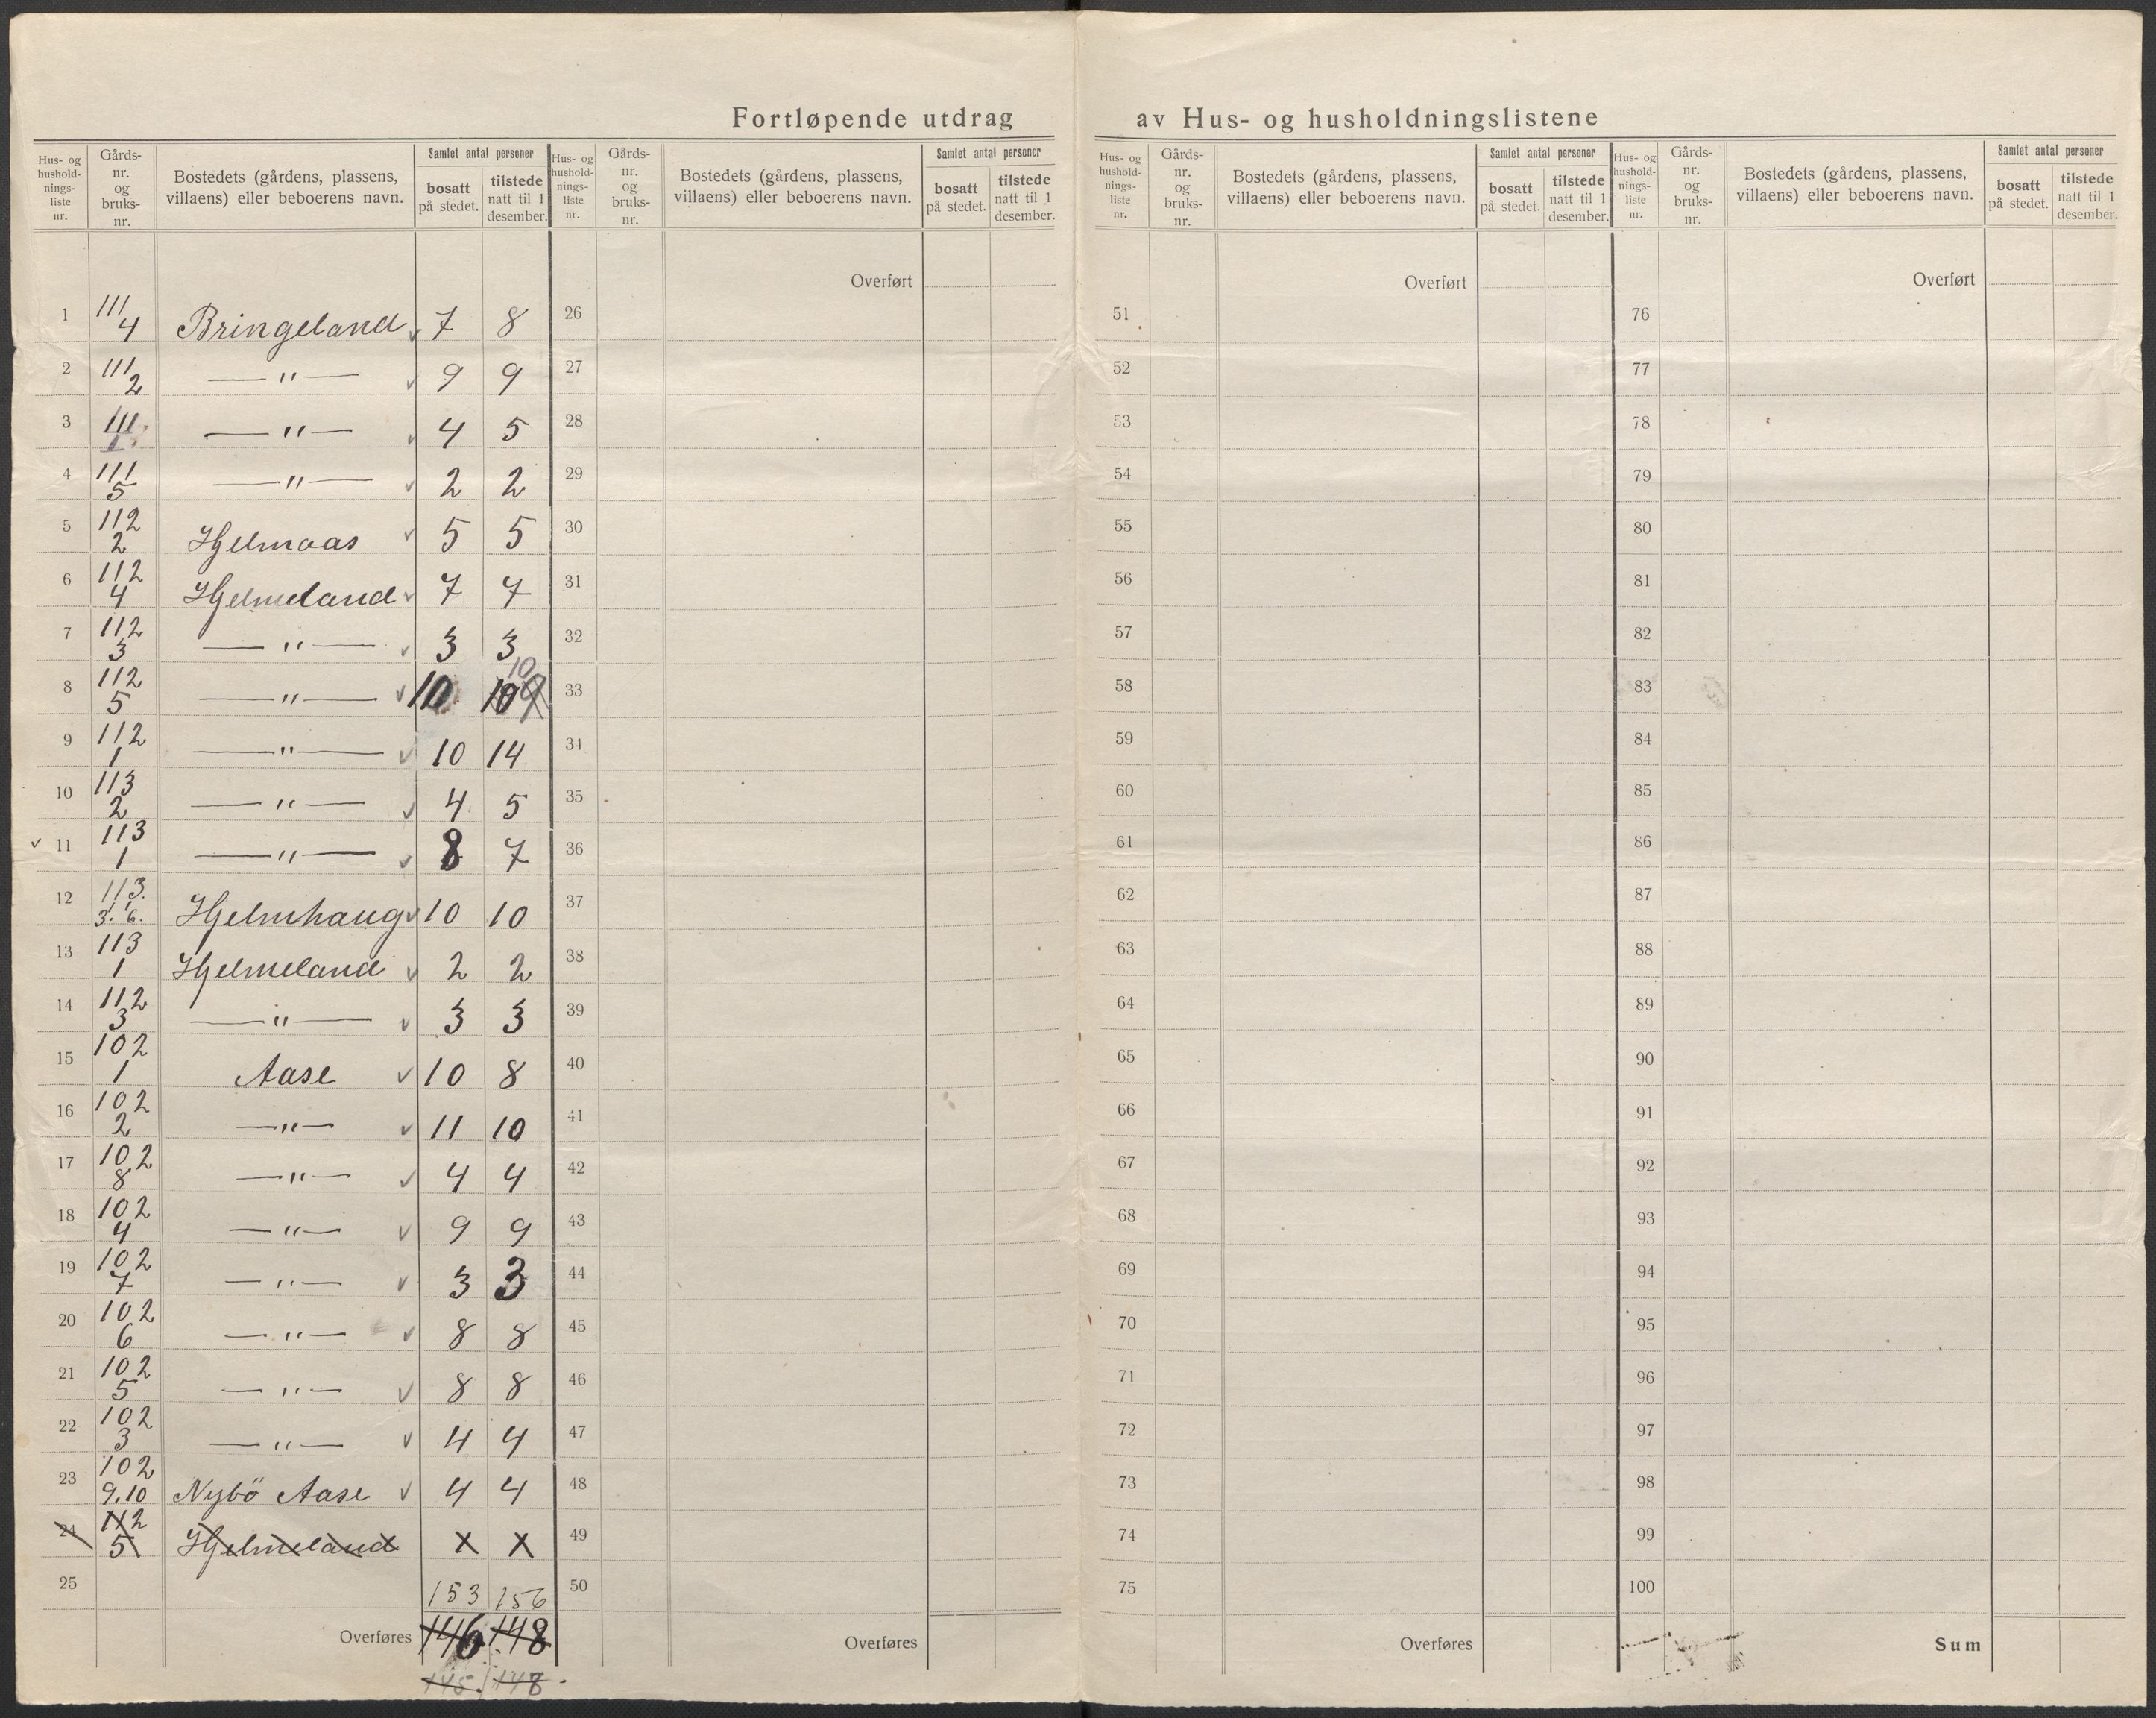 Fortløpende utdrag av Hus- og husholdningslistene
Hus- og hushold-nings-liste nr. | Gårds-nr. og bruks-nr. | Bostedets (gårdens, plassens, villaens) eller beboerens navn. | Samlet antal personer | bosatt på stedet. | tilstede natt til 1 desember.
Hus- og hushold-nings-liste nr. | Gårds-nr. og bruks-nr. | Bostedets (gårdens, plassens, villaens) eller beboerens navn. | Samlet antal personer | bosatt på stedet. | tilstede natt til 1 desember.
Hus- og hushold-nings-liste nr. | Gårds-nr. og bruks-nr. | Bostedets (gårdens, plassens, villaens) eller beboerens navn. | Samlet antal personer | bosatt på stedet. | tilstede natt til 1 desember.
Hus- og hushold-nings-liste nr. | Gårds-nr. og bruks-nr. | Bostedets (gårdens, plassens, villaens) eller beboerens navn. | Samlet antal personer | bosatt på stedet. | tilstede natt til 1 desember.
Overført Overført Overført
1 111/4 Bringeland v 7 8 26 51 76
2 111/2 —"— v 9 9 27 52 77
3 111/1 —"— v 4 5 28 53 78
4 111/5 —"— v 2 2 29 54 79
5 112/2 Hjelmaas v 5 5 30 55 80
6 112/4 Hjelmeland v 7 7 31 56 81
7 112/3 —"— v 3 3 32 57 82
8 112/5 —"— v 10 10 9 10 33 58 83
9 112/1 —"— v 10 14 34 59 84
10 113/2 —"— v 4 5 35 60 85
v 11 113/1 —"— v 8 7 36 61 86
12 113. 3. 6. Hjelmhaug v 10 10 37 62 87
13 113/1 Hjelmeland v 2 2 38 63 88
14 112/3 —"— v 3 3 39 64 89
15 102/1 Aase v 10 8 40 65 90
16 102/2 —"— v 11 10 41 66 91
17 102/8 —"— v 4 4 42 67 92
18 102/4 —"— v 9 9 43 68 93
19 102/7 —"— v 3 3 44 69 94
20 102/6 —"— v 8 8 45 70 95
21 102/5 —"— v 8 8 46 71 96
22 102/3 —"— v 4 4 47 72 97
23 102/9.10 Nybö Aase v 4 4 48 73 98
24 112/5 Hjelmeland x x 49 74 99
25 153 156 50 75 100
Overføres 146 148 Overføres Overføres Sum
145. 148